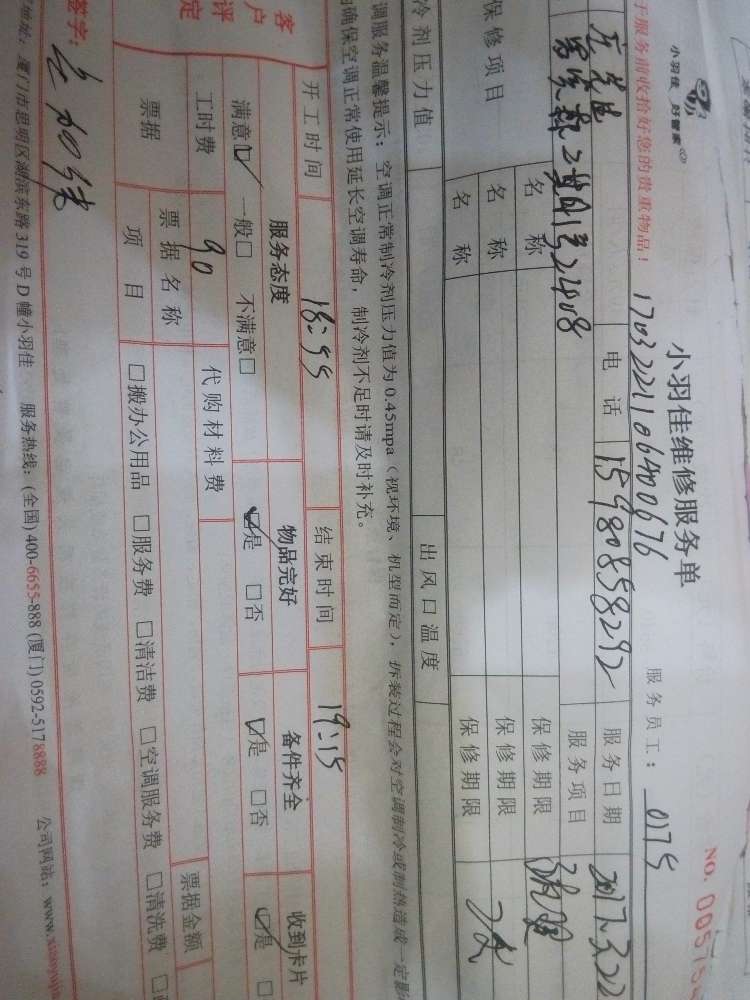 小羽佳 好管家
小羽佳维修服务单
NO. 00575
于服务前收拾好您的贵重物品!
1703221106400676
服务员工: 0175
电话 15980858292 服务日期 2017.3.22
2408 服务项目
保修项目 名称 保修期限
名称 保修期限
名称 保修期限
冷剂压力值 出风口温度
调服务温馨提示: 空调正常制冷剂压力值为 0.45mpa (视环境、机型而定), 拆装过程会对空调制冷或制热造成一定影
确保空调正常使用延长空调寿命, 制冷剂不足时请及时补充。
开工时间 18:55 结束时间 19:15
客户评定 服务态度 物品完好 备件齐全 收到卡片
满意☑ 一般□ 不满意□ ☑是 □否 ☑是 □否 ☑是 □
工时费 90 代购材料费
票据 票据名称 票据金额
项目 □搬办公用品 □服务费 □清洁费 □空调服务费 □清洗费
签字:
地址: 厦门市思明区湖滨东路 319 号 D 幢小羽佳 服务热线: (全国) 400-6655-888 (厦门) 0592-5178888 公司网站: www.xiaoyujia